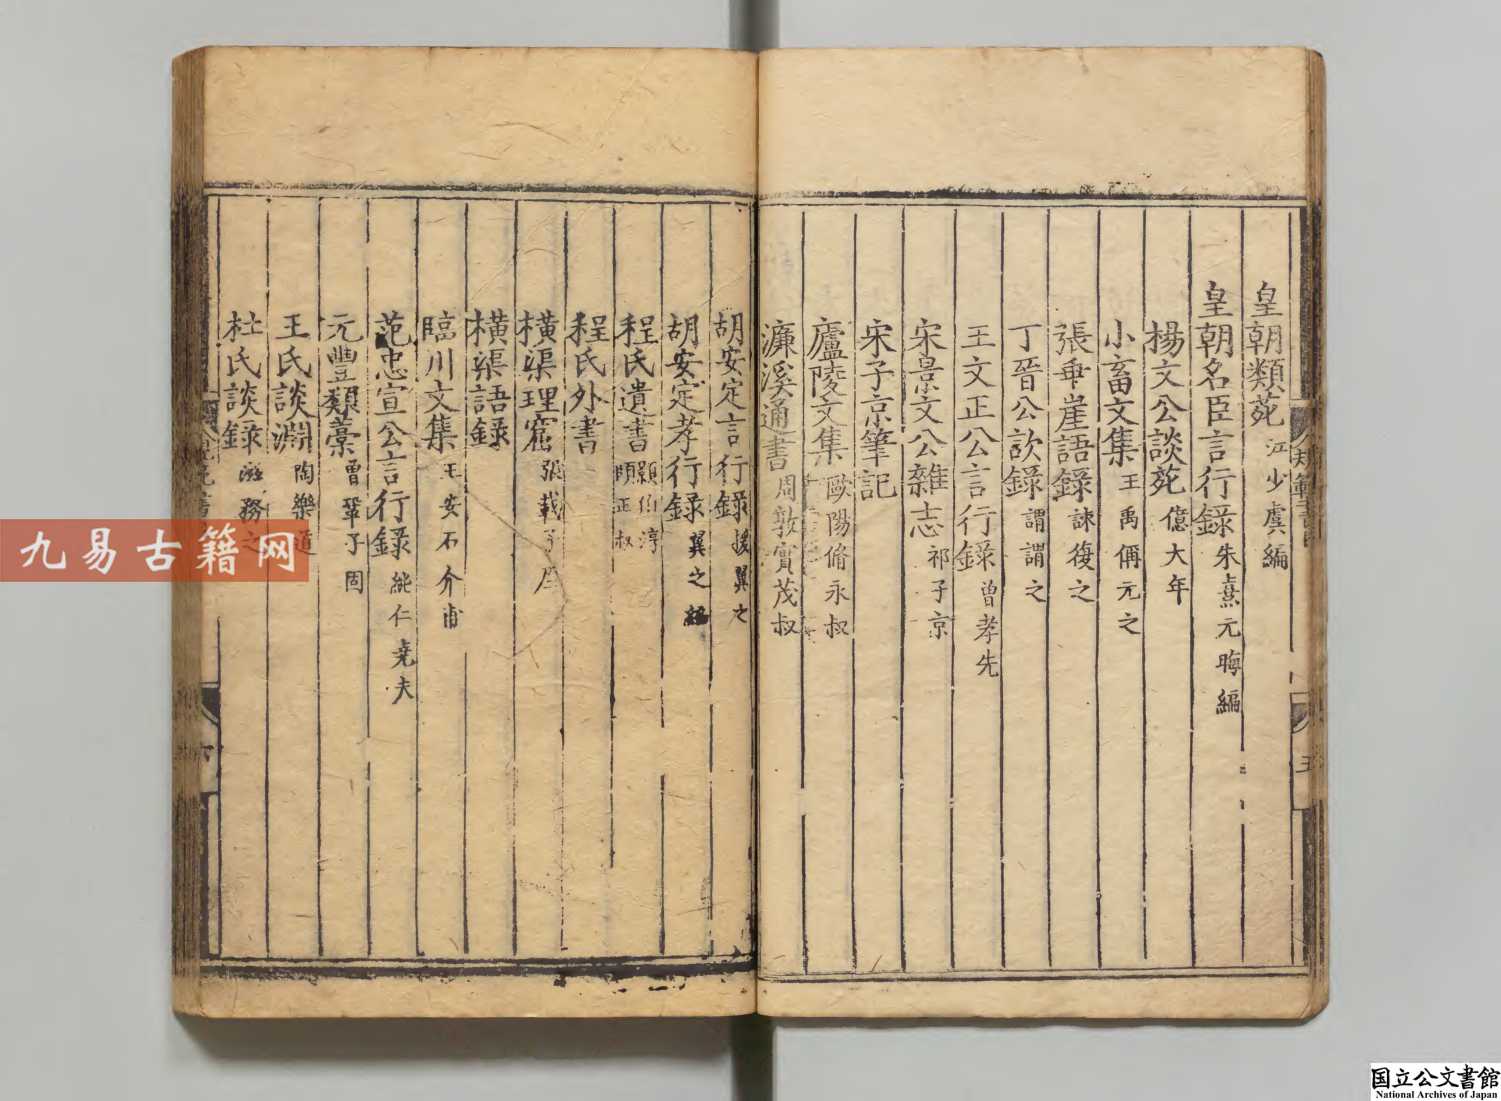 皇朝類苑 江少虞編
皇朝名臣言行録 朱熹元晦編
楊文公談苑 億大年
小畜文集 王禹偁元之
張乖崖語録 詠復之
丁晉公談録 謂謂之
王文正公言行録 曾孝先
宋景文公雜志 祁子京
宋子京筆記
廬陵文集 歐陽脩永叔
濂溪通書 周敦實茂叔
胡安定言行録 援翼之
胡安定孝行録 翼之
程氏遺書 顥伯淳 頤正叔
程氏外書
橫渠理窟 張載子厚
橫渠語録
臨川文集 王安石介甫
范忠宣公言行録 純仁堯夫
元豐類藁 曾鞏子固
王氏談淵 陶樂道
杜氏談録 滋務之
九易古籍网
国立公文書館
National Archives of Japan